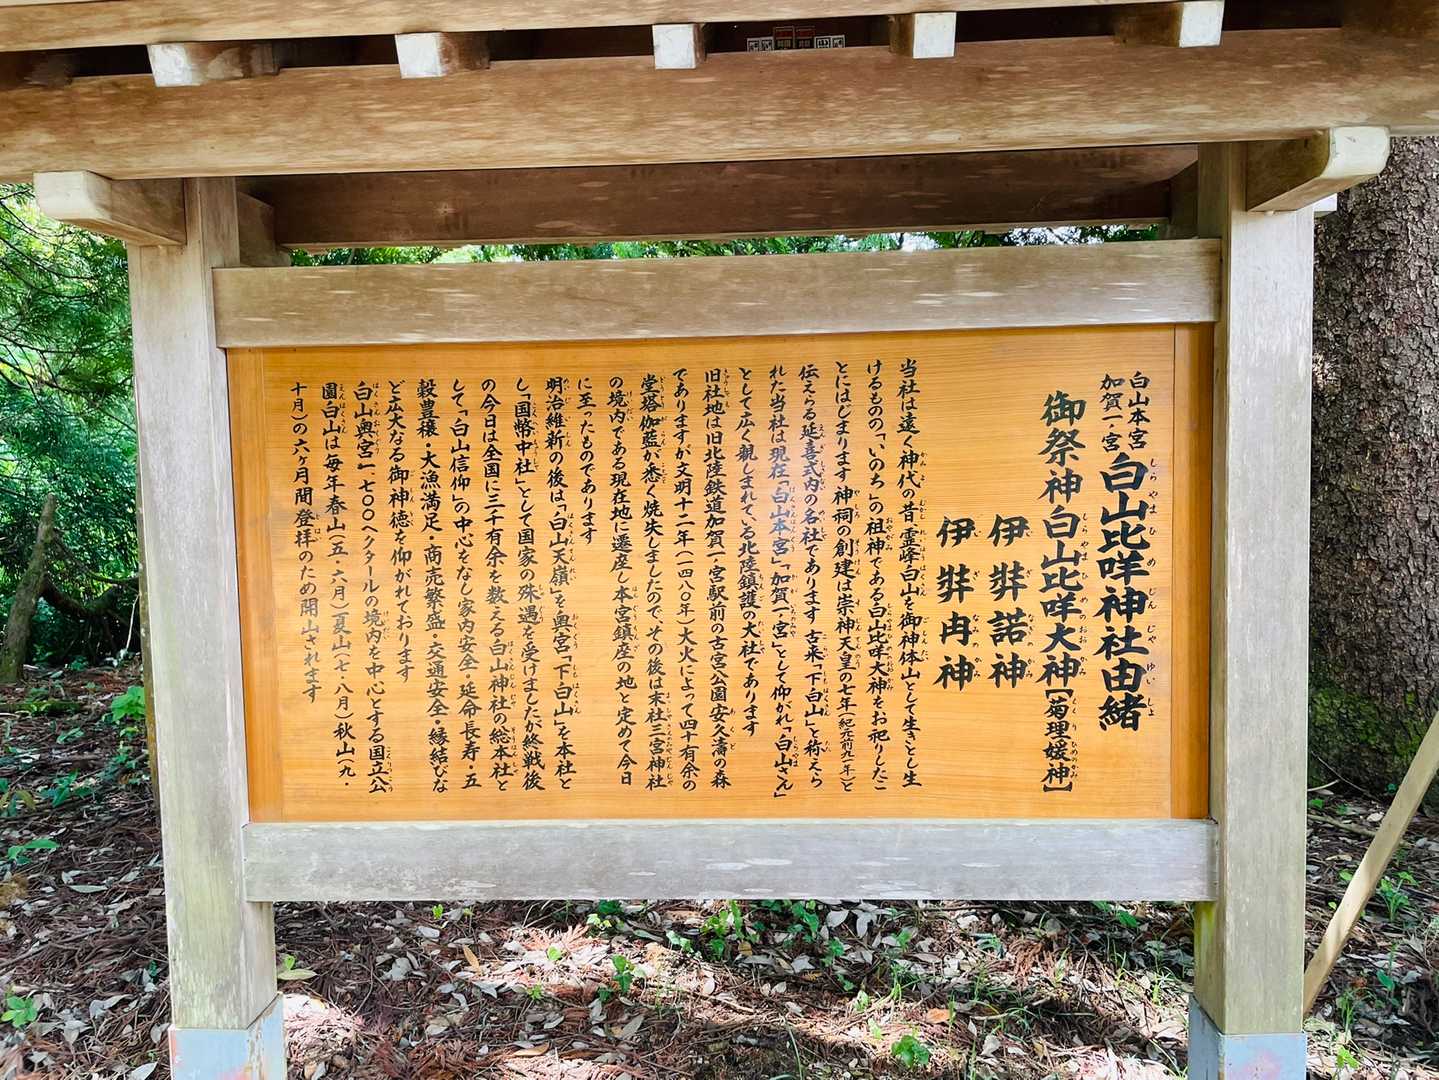 白山本宮
加賀一ノ宮
白山比咩神社由緒
御祭神 白山比咩大神[菊理媛神]
伊弉諾神
伊弉冉神
当社は遠く神代の昔霊峰白山を御神体山として生きとし生
けるものの「いのち」の祖神である白山比咩大神をお祀りしたこ
とにはじまります 神祠の創建は崇神天皇の七年(紀元前九一年)と
伝える延喜式内の名社であります 古来「下白山」と称えら
れた当社は現在「白山本宮」「加賀一ノ宮」として仰がれ「白山さん」
として広く親しまれている北陸鎮護の大社であります
旧社地は旧北陸鉄道加賀一ノ宮駅前の古宮公園安久濤の森
でありますが文明十二年(一四八〇年)大火によって四十有余の
堂塔伽藍が悉く焼失しましたので、その後は末社三宮神社
の境内である現在地に遷座し本宮鎮座の地と定めて今日
に至ったものであります
明治維新の後は「白山天嶺」を奥宮「下白山」を本社と
し「国幣中社」として国家の殊遇を受けましたが終戦後
の今日は全国に三千有余を数える白山神社の総本社と
して「白山信仰」の中心をなし家内安全・延命長寿・五
穀豊穣・大漁満足・商売繁盛・交通安全・縁結びな
ど広大なる御神徳を仰がれております
白山奥宮一、七〇〇ヘクタールの境内を中心とする国立公
園白山は毎年春山(五・六月)夏山(七・八月)秋山(九・
十月)の六ヶ月間登拝のため開山されます